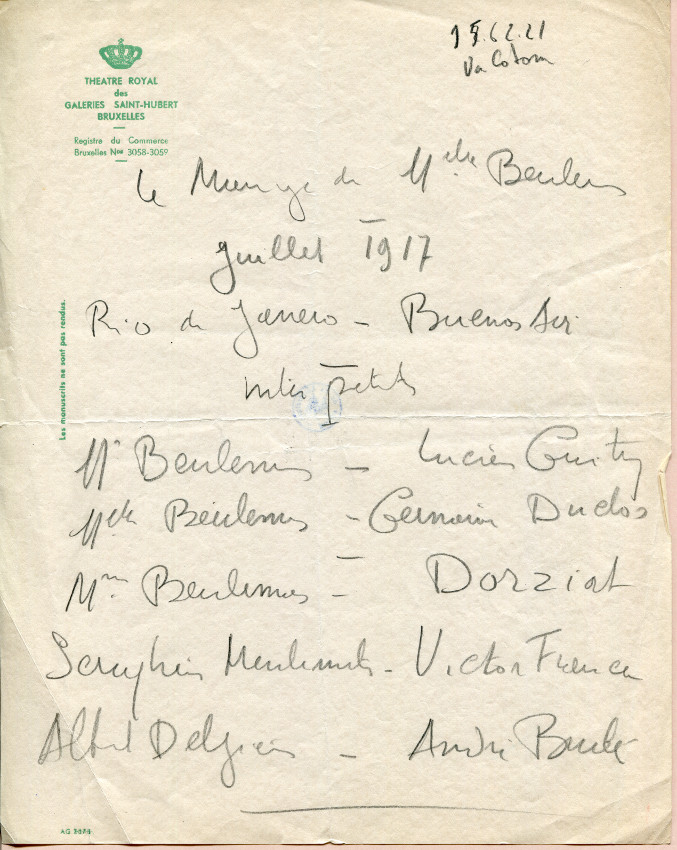 THEATRE ROYAL
des
GALERIES SAINT-HUBERT
BRUXELLES
Registre du Commerce
Bruxelles Nos 3058-3059
Le Mariage de Mlle Beulemans
Juillet 1917
Rio de Janeiro - Buenos Aires
Les manuscrits ne sont pas rendus.
Mr Beulemans - Lucien Guitry
Mlle Beulemans - Germaine Duclos
Mme Beulemans - Dorziat
Seraphin Meulemeester - Victor Francen
Albert Delpierre - André Brulé